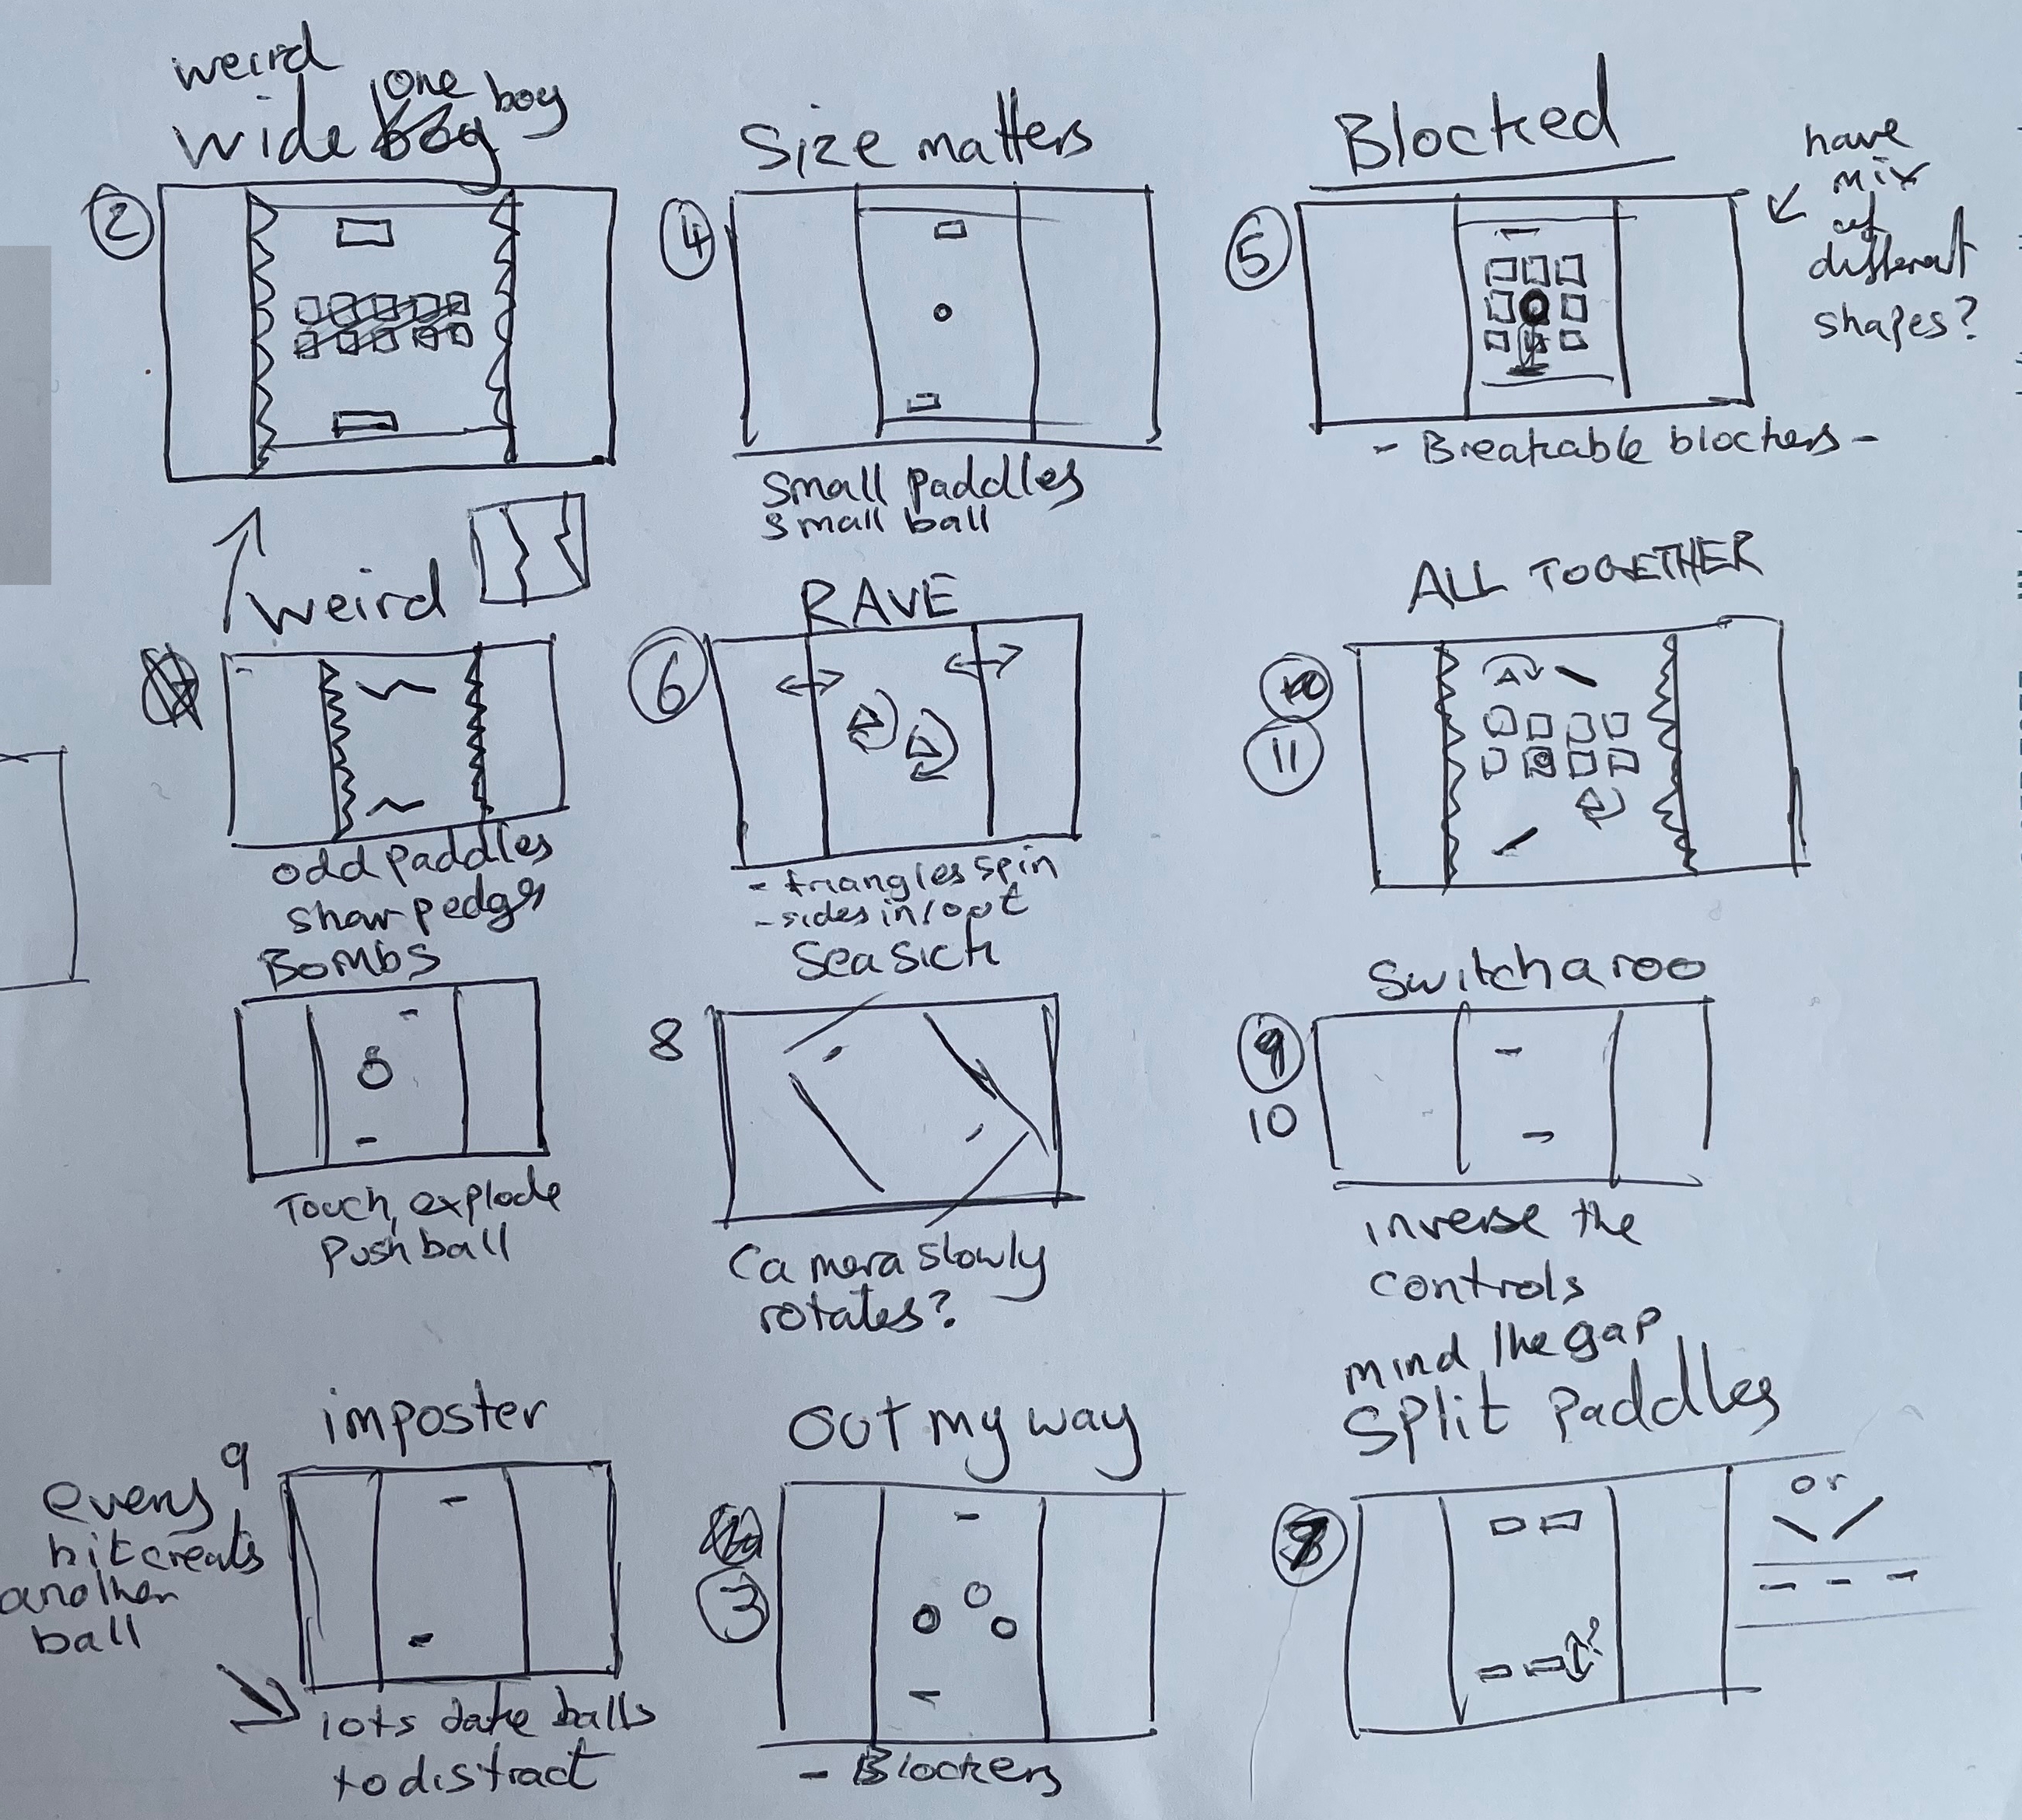 weird
wide one boy
2
Size matters
4
small paddles
small ball
Blocked
5
have
mix
of
different
shapes?
- Breakable blockers -
weird
odd paddles
sharp edges
RAVE
6
- triangles spin
- sides in/out
ALL TOGETHER
10
11
Bombs
Touch, explode
push ball
Sea sick
8
Camera slowly
rotates?
Switcharoo
9
10
inverse the
controls
imposter
9
hit creats
another
ball
to distract
Out my way
3
- Blockers
mind the gap
Split Paddles
or
?